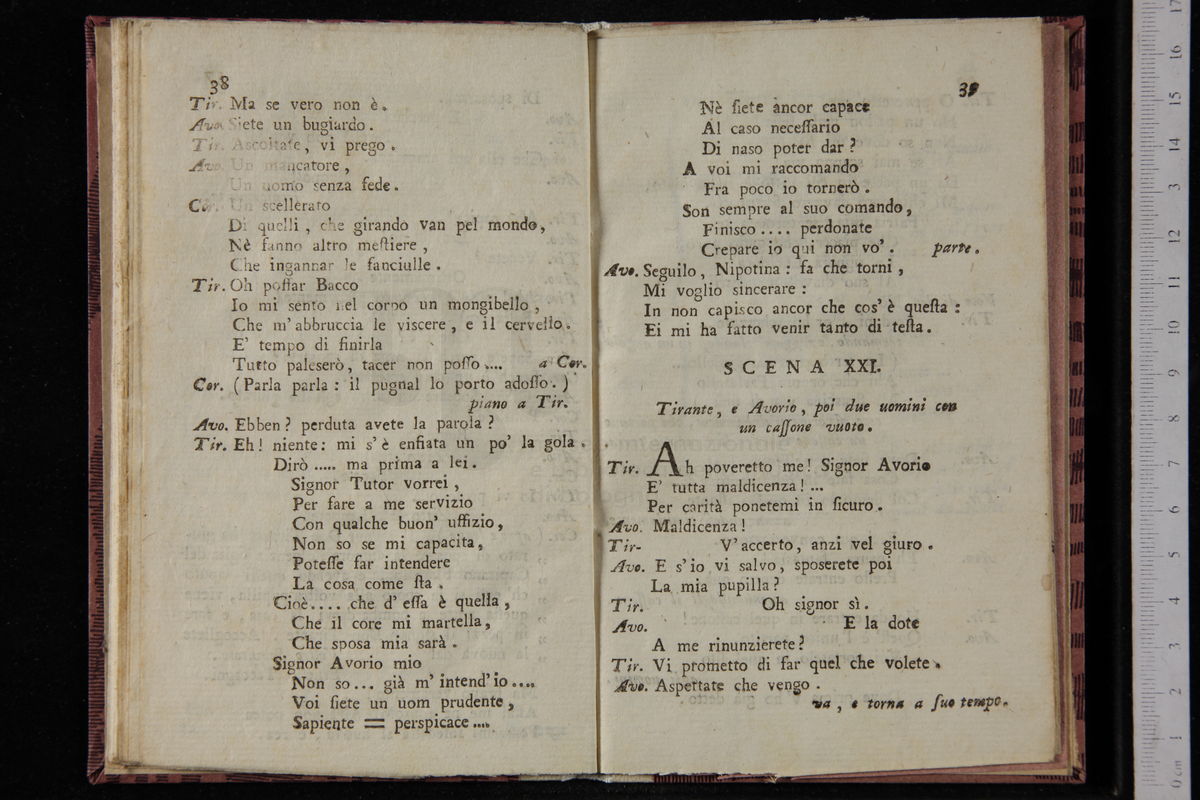 38
Tir. Ma se vero non è.
Avo. Siete un bugiardo.
Tir. Ascoltate, vi prego.
Avo. Un mancatore,
Un uomo senza fede.
Cor. Un scellerato
Di quelli, che girando van pel mondo,
Nè fanno altro meſtiere,
Che ingannar le fanciulle.
Tir. Oh poſſar Bacco
Io mi sento nel corpo un mongibello,
Che m'abbruccia le viscere, e il cervello.
E' tempo di finirla
Tutto paleserò, tacer non poſſo .... a Cor.
Cor. (Parla parla: il pugnal lo porto adoſſo.)
piano a Tir.
Avo. Ebben? perduta avete la parola?
Tir. Eh! niente: mi s'è enfiata un po' la gola.
Dirò ..... ma prima a lei.
Signor Tutor vorrei,
Per fare a me servizio
Con qualche buon' uffizio,
Non so se mi capacita,
Poteſſe far intendere
La cosa come ſta.
Cioè.... che d'eſſa è quella,
Che il core mi martella,
Che sposa mia sarà.
Signor Avorio mio
Non so... già m'intend'io....
Voi ſiete un uom prudente,
Sapiente = perspicace ....
39
Nè ſiete ancor capace
Al caso neceſſario
Di naso poter dar?
A voi mi raccomando
Fra poco io tornerò.
Son sempre al suo comando,
Finisco .... perdonate
Crepare io qui non vo'. parte.
Avo. Seguilo, Nipotina: fa che torni,
Mi voglio sincerare:
In non capisco ancor che cos'è queſta:
Ei mi ha fatto venir tanto di teſta.
SCENA XXI.
Tirante, e Avorio, poi due uomini con
un caſſone vuoto.
Tir. Ah poveretto me! Signor Avorio
E' tutta maldicenza! ...
Per carità ponetemi in ſicuro.
Avo. Maldicenza!
Tir- V'accerto, anzi vel giuro.
Avo. E s'io vi salvo, sposerete poi
La mia pupilla?
Tir. Oh signor sì.
Avo. E la dote
A me rinunzierete?
Tir. Vi prometto di far quel che volete.
Avo. Aspettate che vengo.
va, e torna a ſuo tempo.